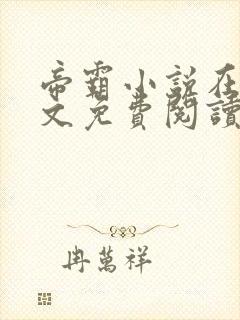 帝霸小说在
文免费閱讀
冉萬祥